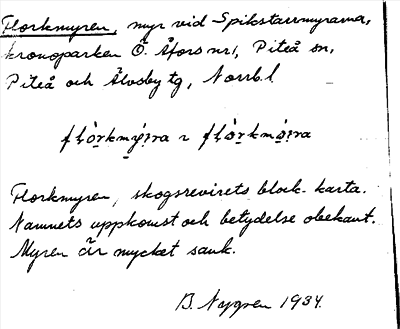 Florkmyren, myr vid Spikstarrmyrarna,
kronoparken Ö. Åfors nr 1, Piteå sn,
Piteå och Älvsby tg, Norrb. l
Florkmyren, skogsrevirets block-karta.
Namnets uppkomst och betydelse obekant.
Myren är mycket sank.
B. Nygren 1934.